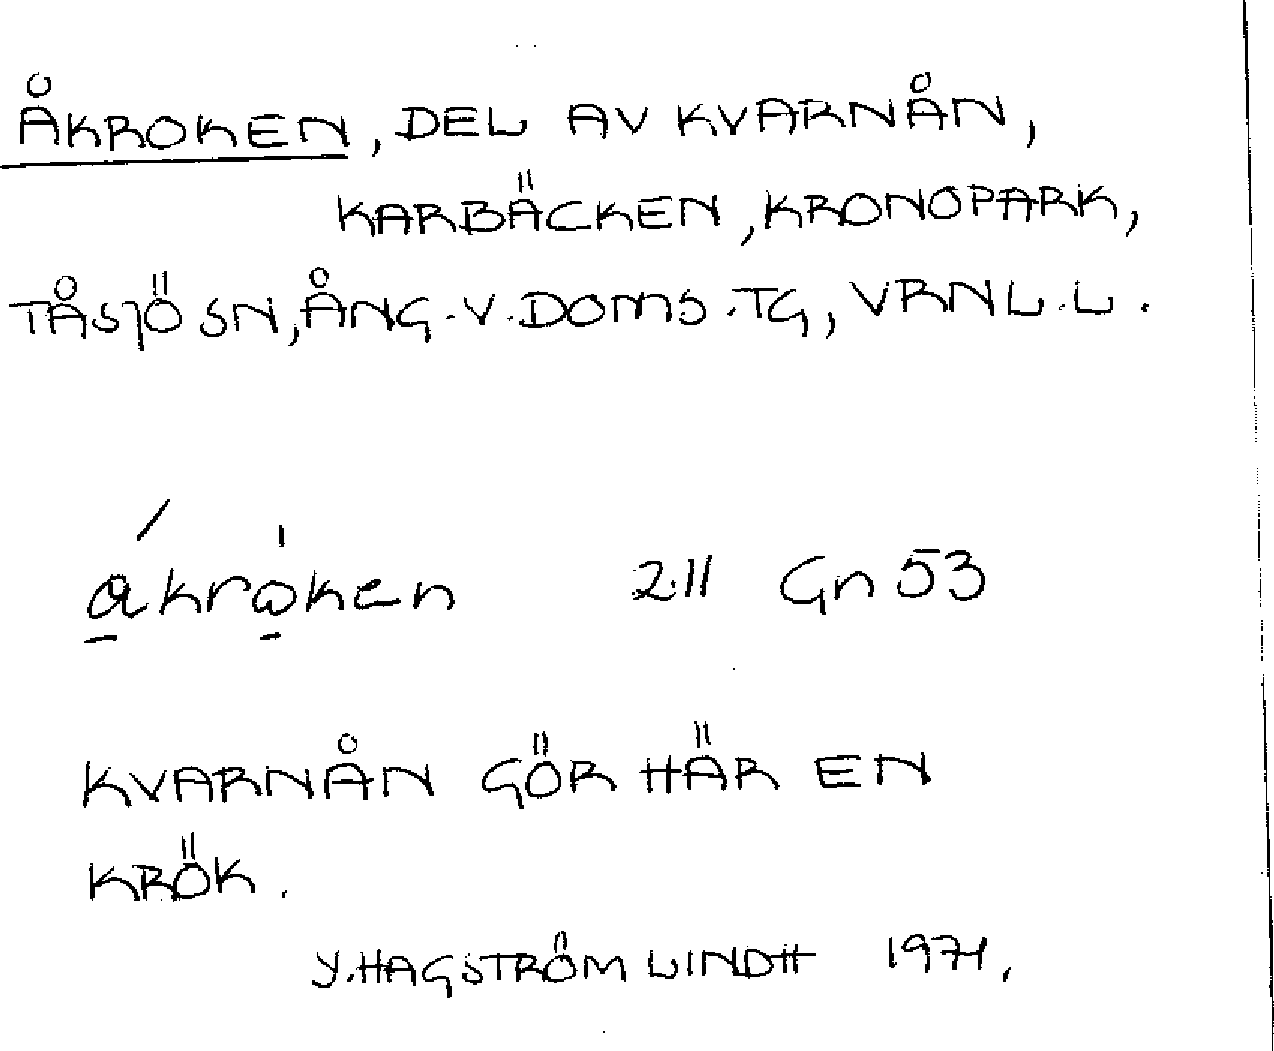 ÅKROKEN, DEL AV KVARNÅN,
KARBÄCKEN, KRONOPARK,
TÅSJÖ SN, ÅNG. V. DOMS. TG, VRNL. L.
åkroken 2.11 Gn 53
KVARNÅN GÖR HÄR EN
KRÖK.
Y. HAGSTRÖM LINDH 1971.